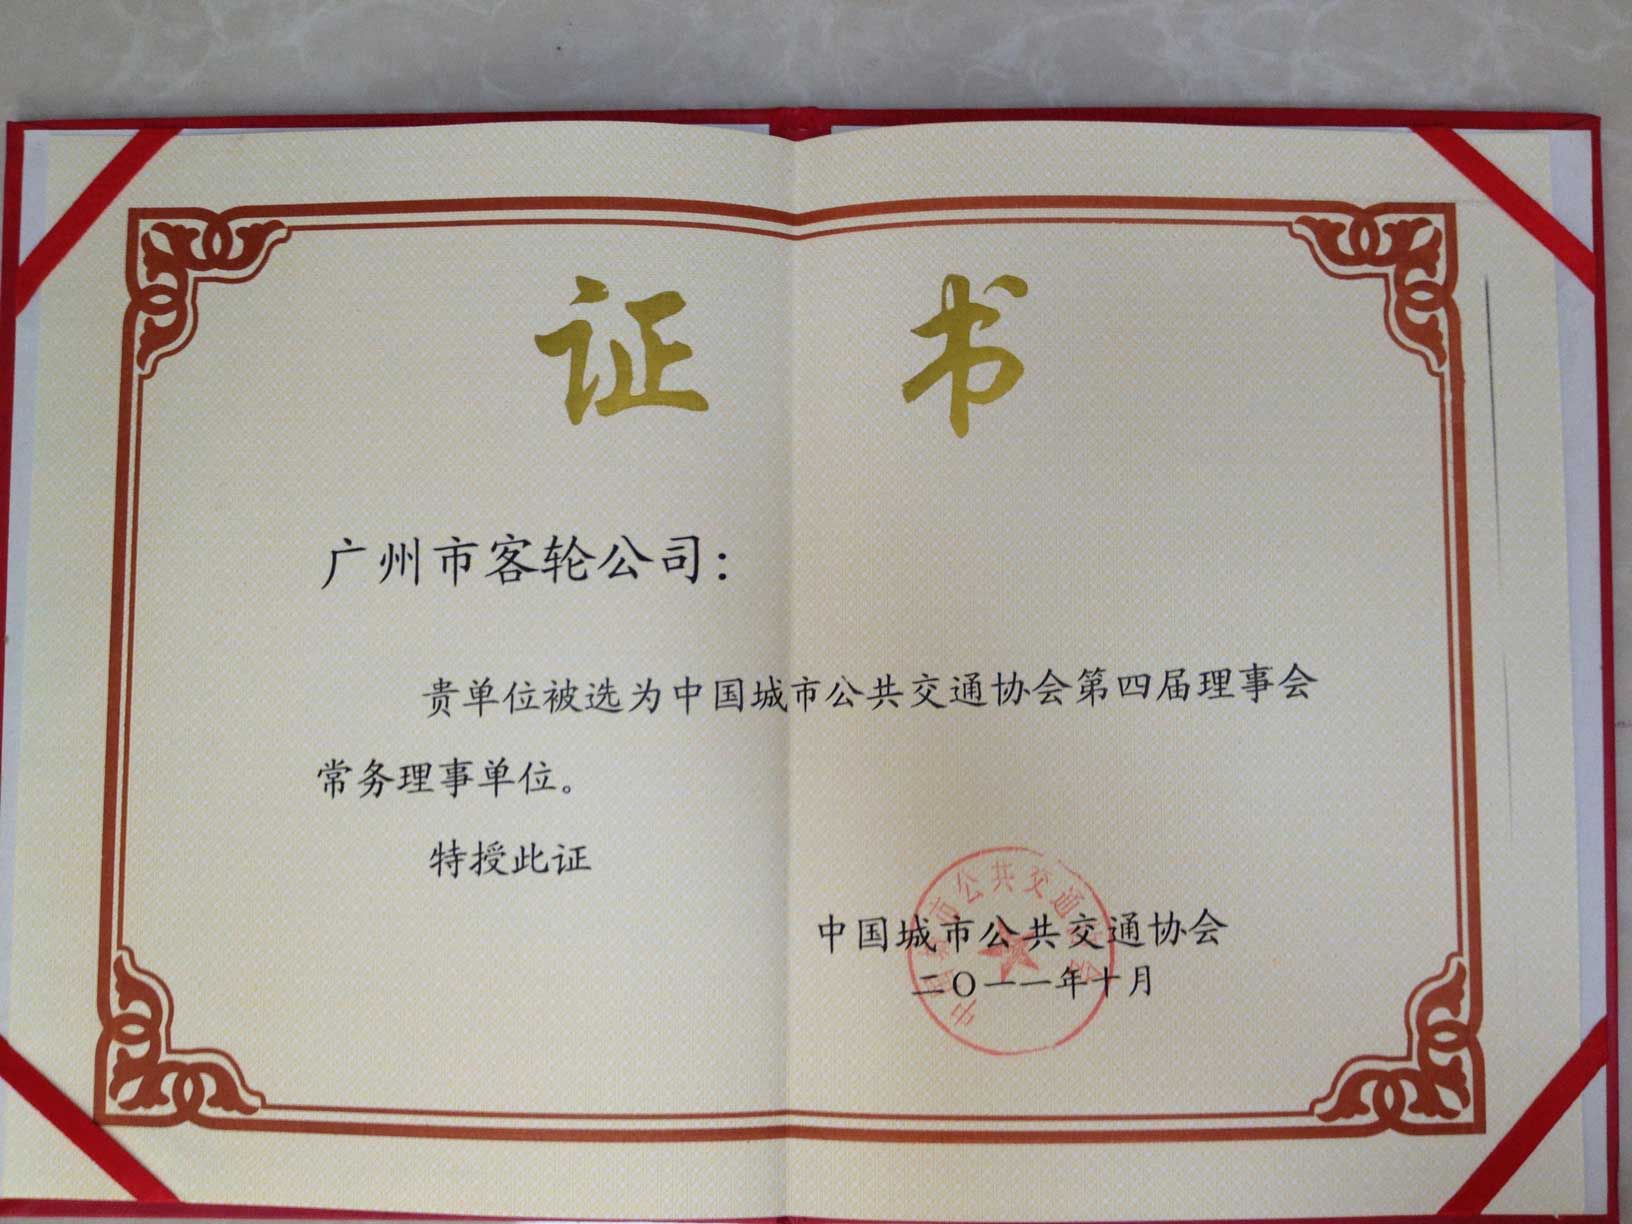 证书
广州市客轮公司：
贵单位被选为中国城市公共交通协会第四届理事会
常务理事单位。
特授此证
中国城市公共交通协会
二〇一一年十月
中国城市公共交通协会